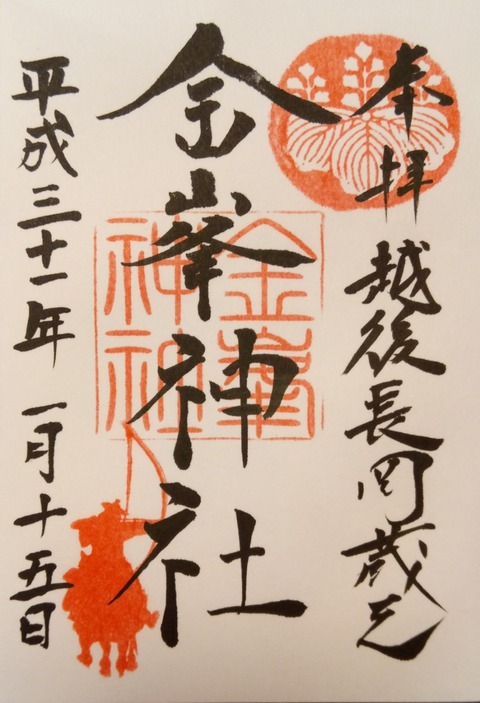 奉拝
越後長岡蔵王
金峯神社
金峯
神社
平成三十一年 一月十五日